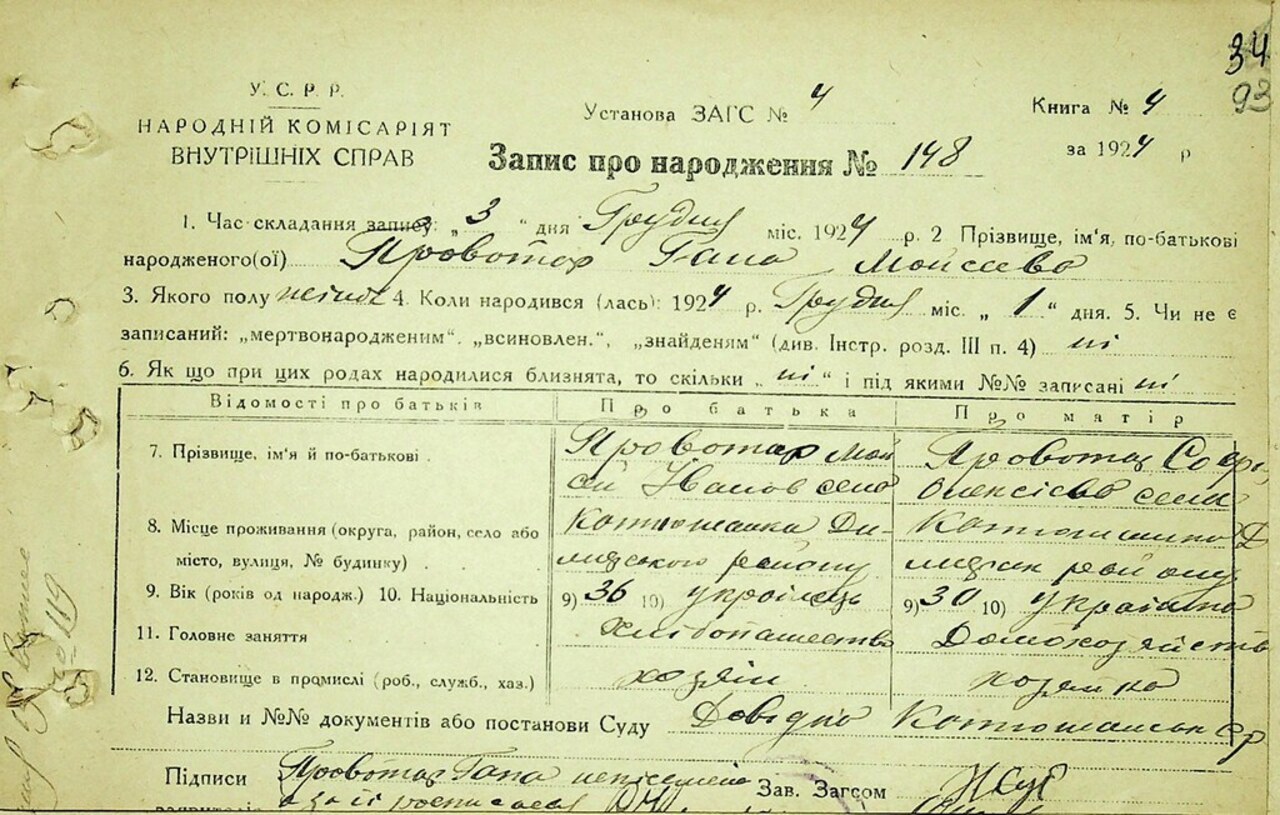 34
93
У. С. Р. Р.
НАРОДНІЙ КОМІСАРІЯТ
ВНУТРІШНІХ СПРАВ
Установа ЗАГС № 4
Книга № 4
за 1924 р
Запис про народження № 148
1. Час складання запису: „3“ дня Грудня міс. 1924 р. 2 Прізвище, ім'я, по-батькові
народженого(ої) Провотар Гана Мойсеєва
3. Якого полу 4. Коли народився (лась): 1924 р. Грудня міс. „1“ дня. 5. Чи не є
записаний: „мертвонародженим“. „всиновлен.“, „знайденям“ (див. Інстр. розд. III п. 4) ні
6. Як що при цих родах народилися близнята, то скільки „ні“ і під якими №№ записані ні
Відомості про батьків Про батька Про матір
7. Прізвище, ім'я й по-батькові Провотар Мой Провотар Софі
сей Іванов села Олексієва села
8. Місце проживання (округа, район, село або Котюжанка Ди- Д
місто, вулиця, № будинку) мерського району району
9. Вік (років од народж.) 10. Національність 9) 36 10) українець 9) 30 10) українка
11. Головне заняття хлібопашество Домохозяйств
12. Становище в промислі (роб., служб., хаз.) хозяїн хозяйка
Назви и №№ документів або постанови Суду Довідка
Підписи Провотар Гана неписьмена Зав. Загсом
а за її росписался